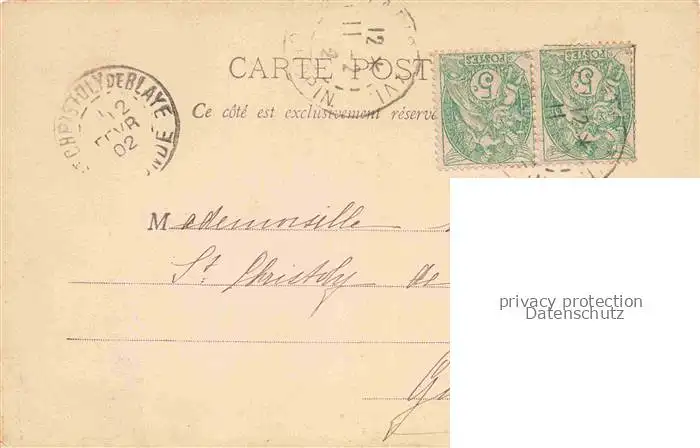 CARTE POST
Ce côté est exclusivement réservé
Sᵗ CHRISTOLY DE BLAYE
12
FEVR
02
12
11
5ᶜ
POSTES
5ᶜ
POSTES
12
11
Mademoiselle
St Christoly de
privacy protection
Datenschutz